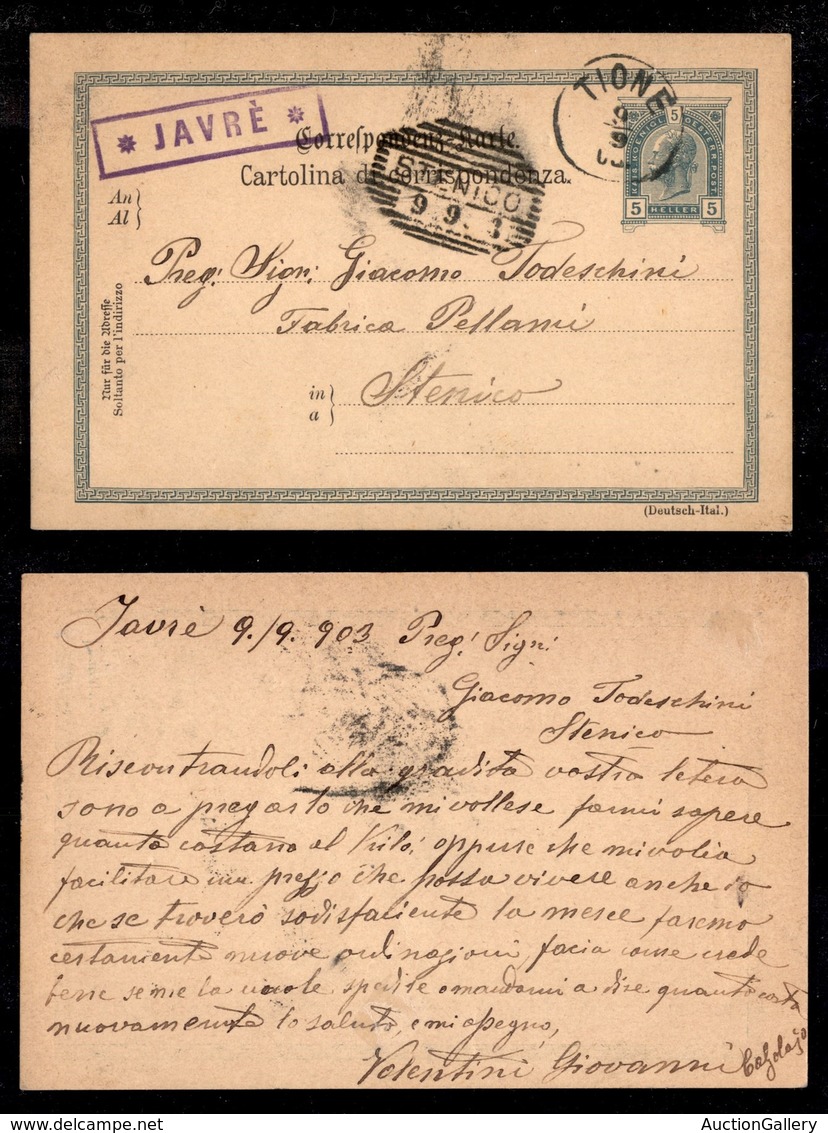 * JAVRÈ *
TIONE
9
9
Correspondenz-Karte.
Cartolina di corrispondenza.
STENICO
9 9. 3
KAIS. KOENIGL. 5 OESTERR. POST
5 HELLER 5
An
Al
Nur für die Adresse
Soltanto per l'indirizzo
Preg: Sigr: Giacomo Todeschini
Fabrica Pellami
in
a
Stenico
(Deutsch-Ital.)
Javrè 9./9. 903 Preg: Sigr:
Giacomo Todeschini
Stenico
Riscontrandoli alla gradita vostra letera
sono a pregarlo che mi vollese farmi sapere
quanto costano al Kilo: oppure che mi volia
facilitare un prezzo che possa vivere anche io
che se troverò sodisfaciente la merce faremo
certamente nuove ordinazioni, facia come crede
bene se me la vuole spedire o mandarmi a dire quanto costa
nuovamente lo saluto, e mi assegno,
Valentini Giovanni Calzolajo
AuctionGallery